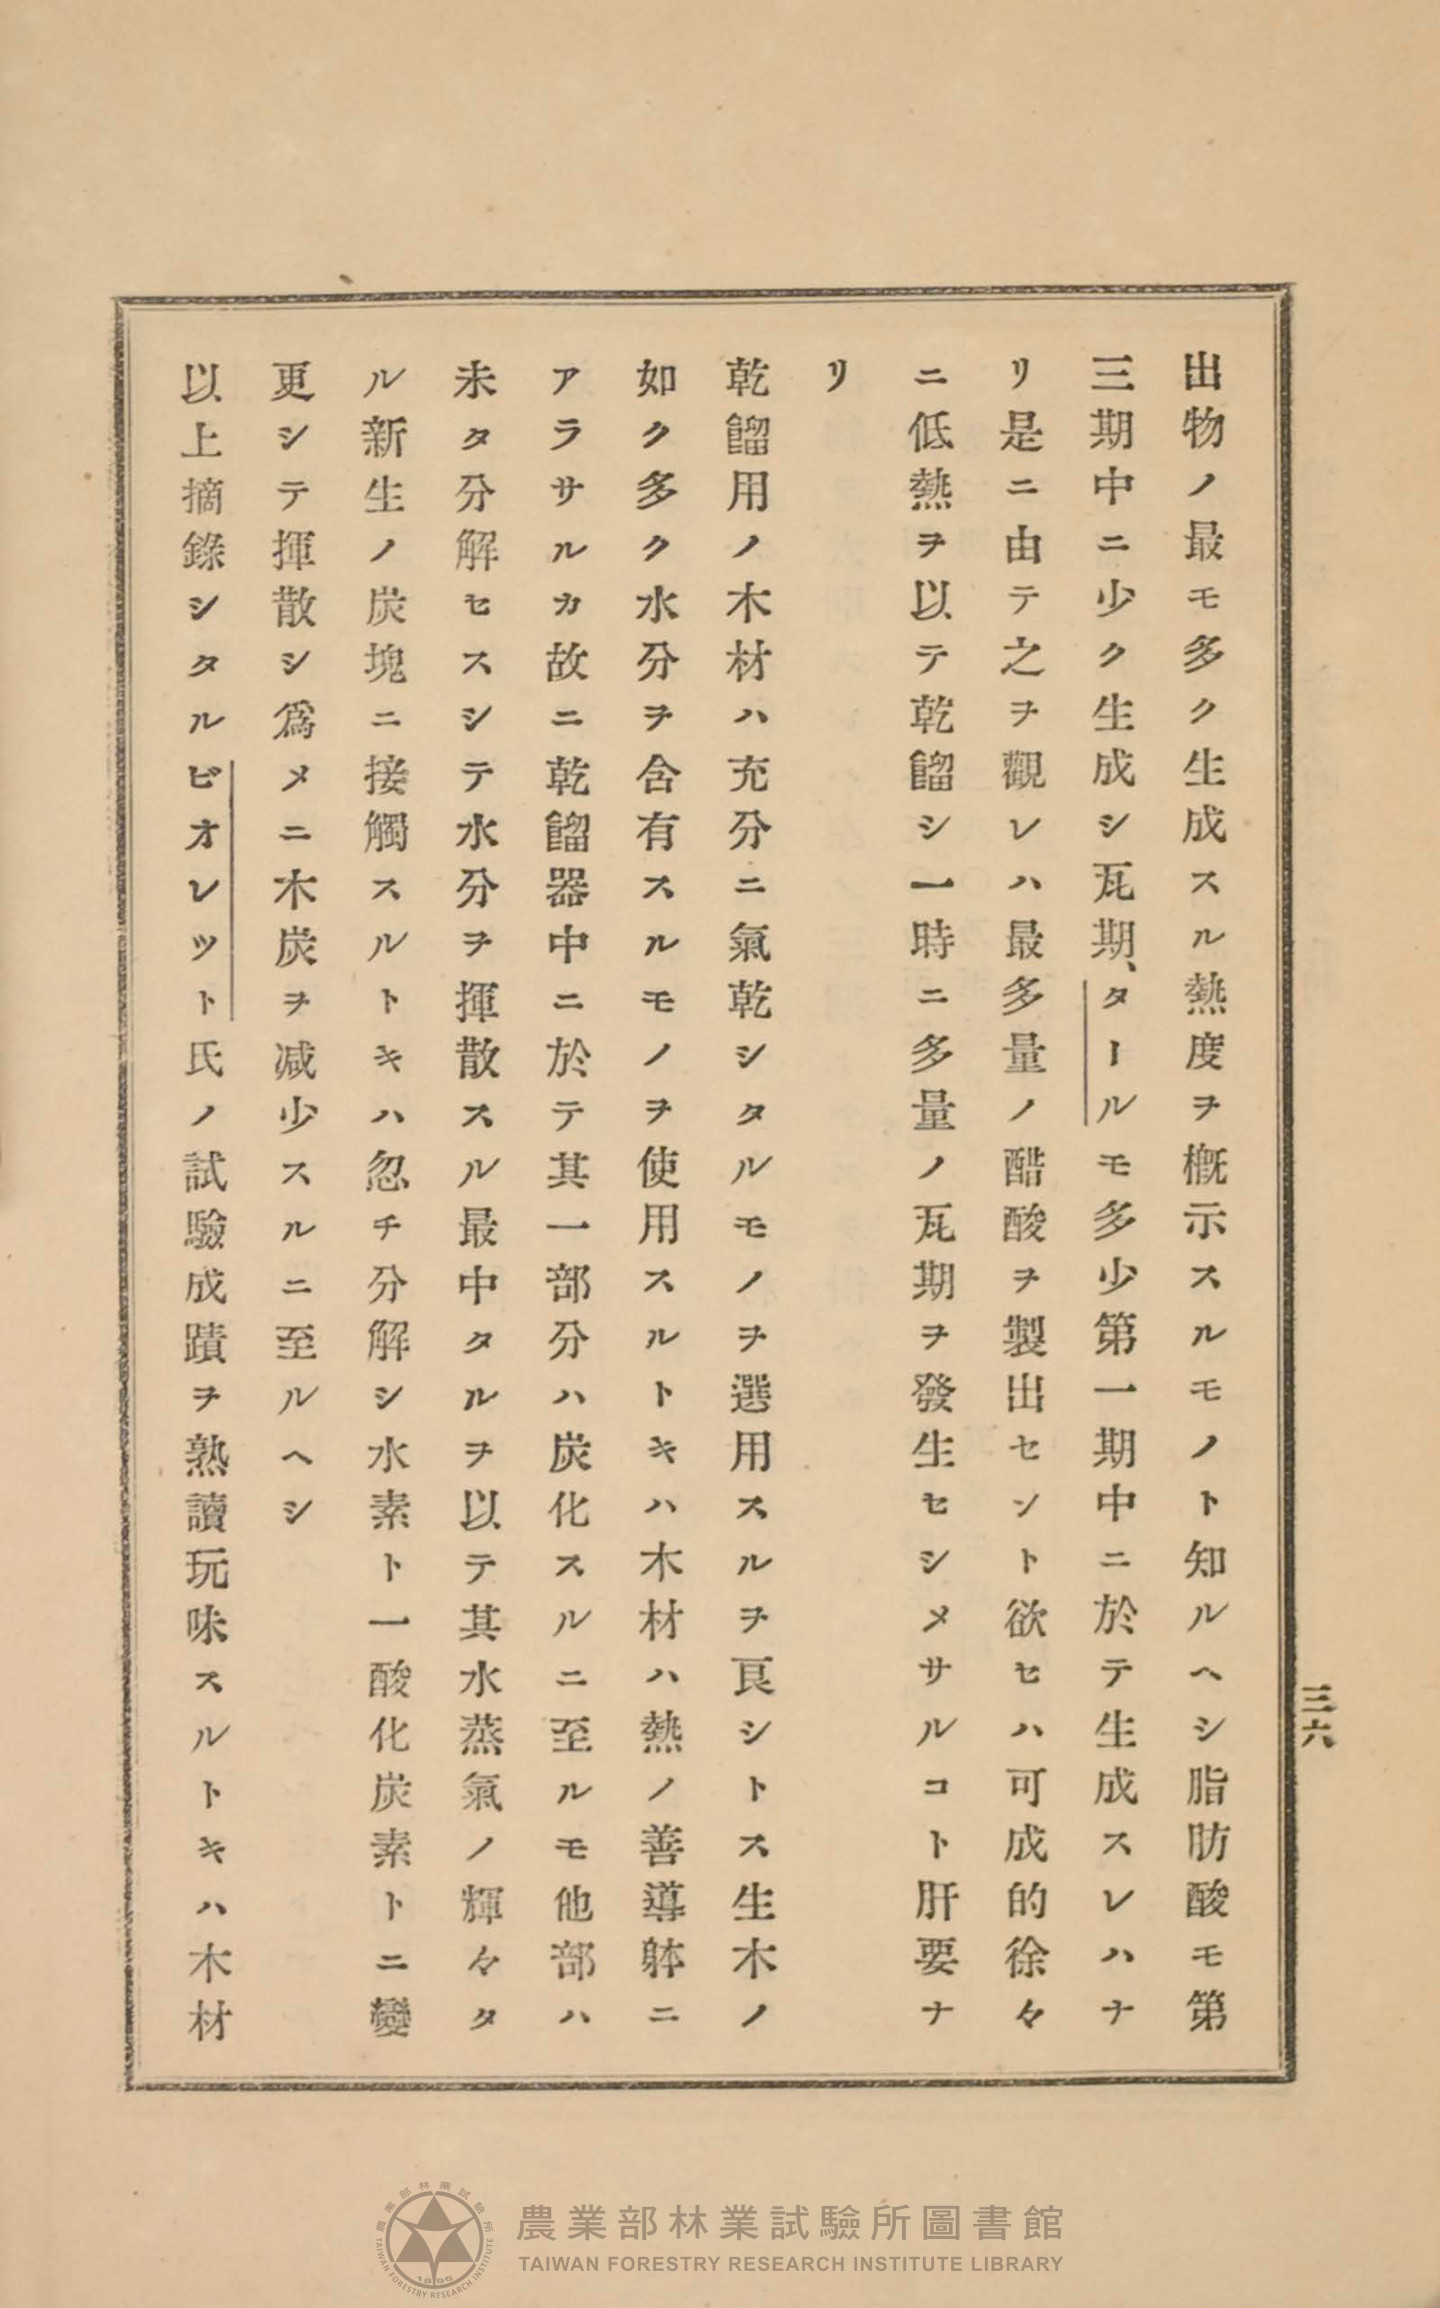 出物ノ最モ多ク生成スル熱度ヲ概示スルモノト知ルヘシ脂肪酸モ第
三期中ニ少ク生成シ瓦期、タールモ多少第一期中ニ於テ生成スレハナ
リ是ニ由テ之ヲ觀レハ最多量ノ醋酸ヲ製出セント欲セハ可成的徐々
ニ低熱ヲ以テ乾餾シ一時ニ多量ノ瓦期ヲ發生セシメサルコト肝要ナ
リ
乾餾用ノ木材ハ充分ニ氣乾シタルモノヲ選用スルヲ良シトス生木ノ
如ク多ク水分ヲ含有スルモノヲ使用スルトキハ木材ハ熱ノ善導躰ニ
アラサルカ故ニ乾餾器中ニ於テ其一部分ハ炭化スルニ至ルモ他部ハ
未タ分解セスシテ水分ヲ揮散スル最中タルヲ以テ其水蒸氣ノ輝々タ
ル新生ノ炭塊ニ接觸スルトキハ忽チ分解シ水素ト一酸化炭素トニ變
更シテ揮散シ爲メニ木炭ヲ減少スルニ至ルヘシ
以上摘錄シタルビオレット氏ノ試驗成蹟ヲ熟讀玩味スルトキハ木材
三六
農業部林業試驗所圖書館
TAIWAN FORESTRY RESEARCH INSTITUTE LIBRARY
農業部林業試驗所
TAIWAN FORESTRY RESEARCH INSTITUTE
1896